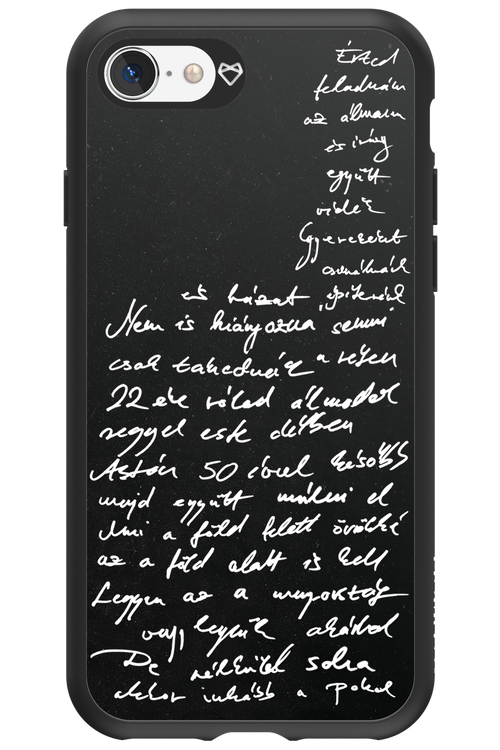 Érted
feladnám
az álmam
és így
együtt
vidék
Gyerekeink
csinálnánk
és házat építenénk
Nem is hiányozna semmi
csak tekednék a réten
22 éve rólad álmodok
reggel este délben
Aztán 50 évvel később
majd együtt múlni el
Ami a föld felett örökké
az a föld alatt is kell
Legyen az a mennyország
vagy legyünk akárhol
De nélküled soha
akkor inkább a Pokol